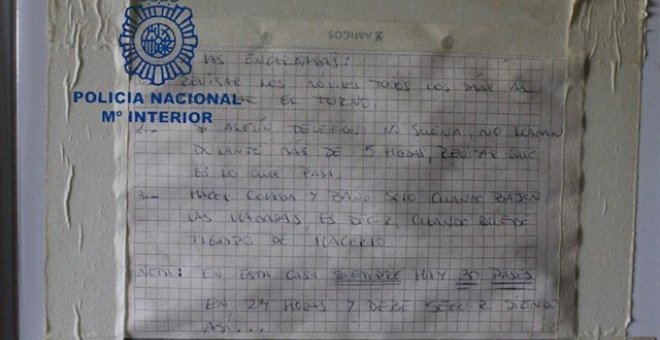 & AMIGOS
LAS ENCARGADAS:
REVISAR LOS MOVILES TODOS LOS DIAS AL
EL TURNO.
POLICIA NACIONAL
Mº INTERIOR
2.- SI ALGÚN TELEFONO NO SUENA, NO LLAMAN
DURANTE MAS DE 5 HORAS, REVISAR QUE
ES LO QUE PASA.
3.- HACER COMIDA Y BAÑO SOLO CUANDO BAJEN
LAS LLAMADAS, ES DECIR, CUANDO QUEDE
TIEMPO DE HACERLO
NOTA: EN ESTA CASA SIEMPRE HAY 30 PASES
EN 24 HORAS Y DEBE SEGUIR SIENDO
ASÍ...